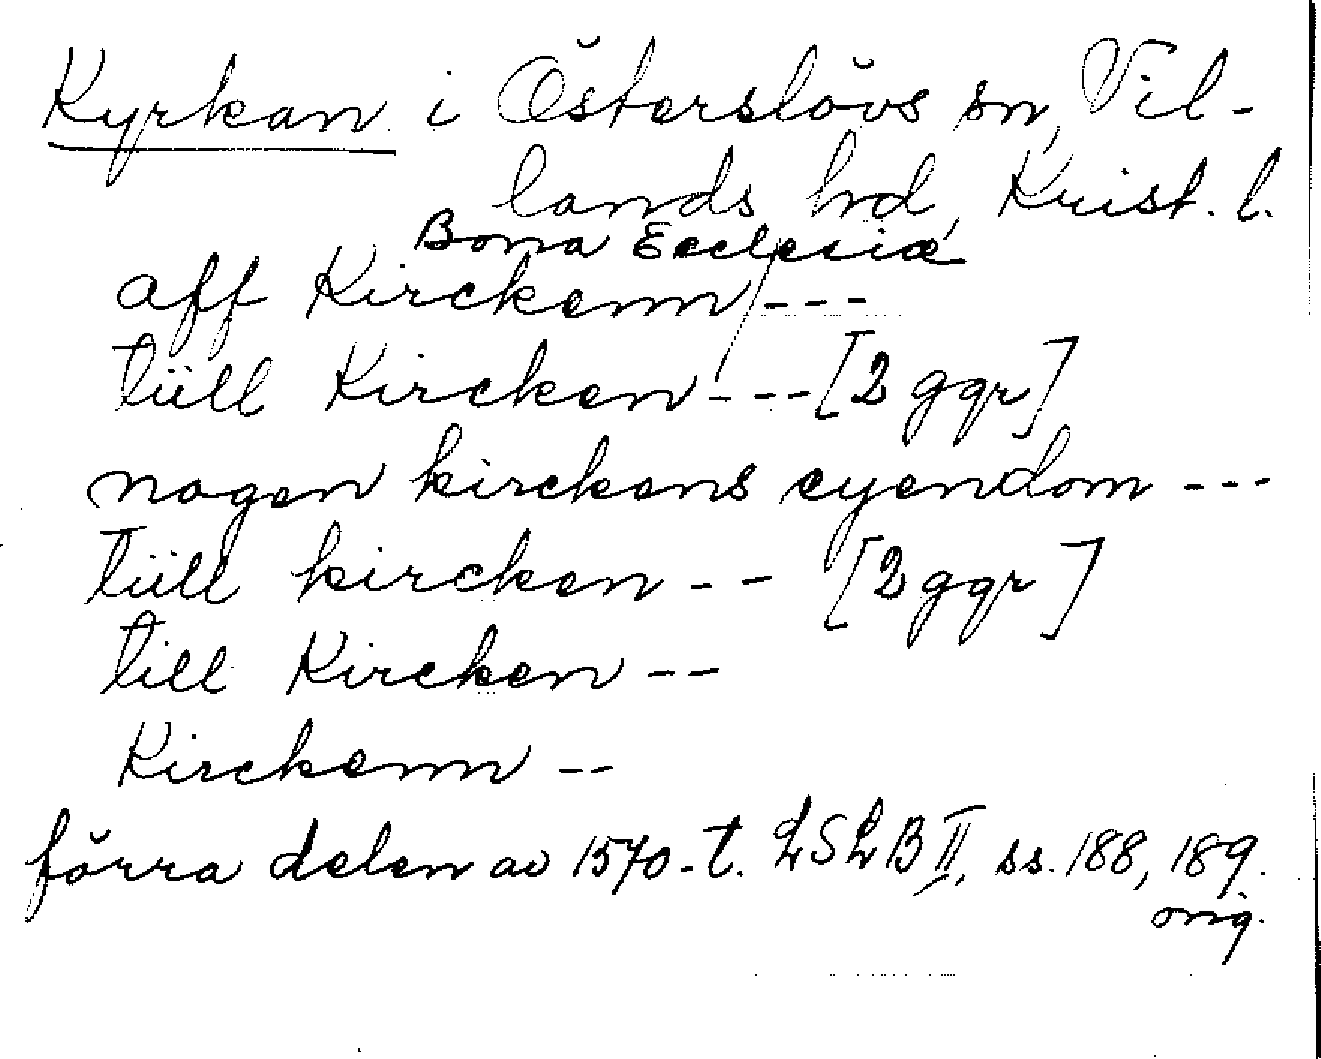 Kyrkan i Österslövs sn, Vil-
lands hd, Krist. l.
Bona Ecclesiæ
aff Kirckenn / ---
tiill Kircken --- [2 ggr]
nogen kirckens eyendom ---
tiill kircken -- [2 ggr]
till Kircken --
Kirckenn --
förra delen av 1570-t. LSLB II, ss. 188, 189.
orig.